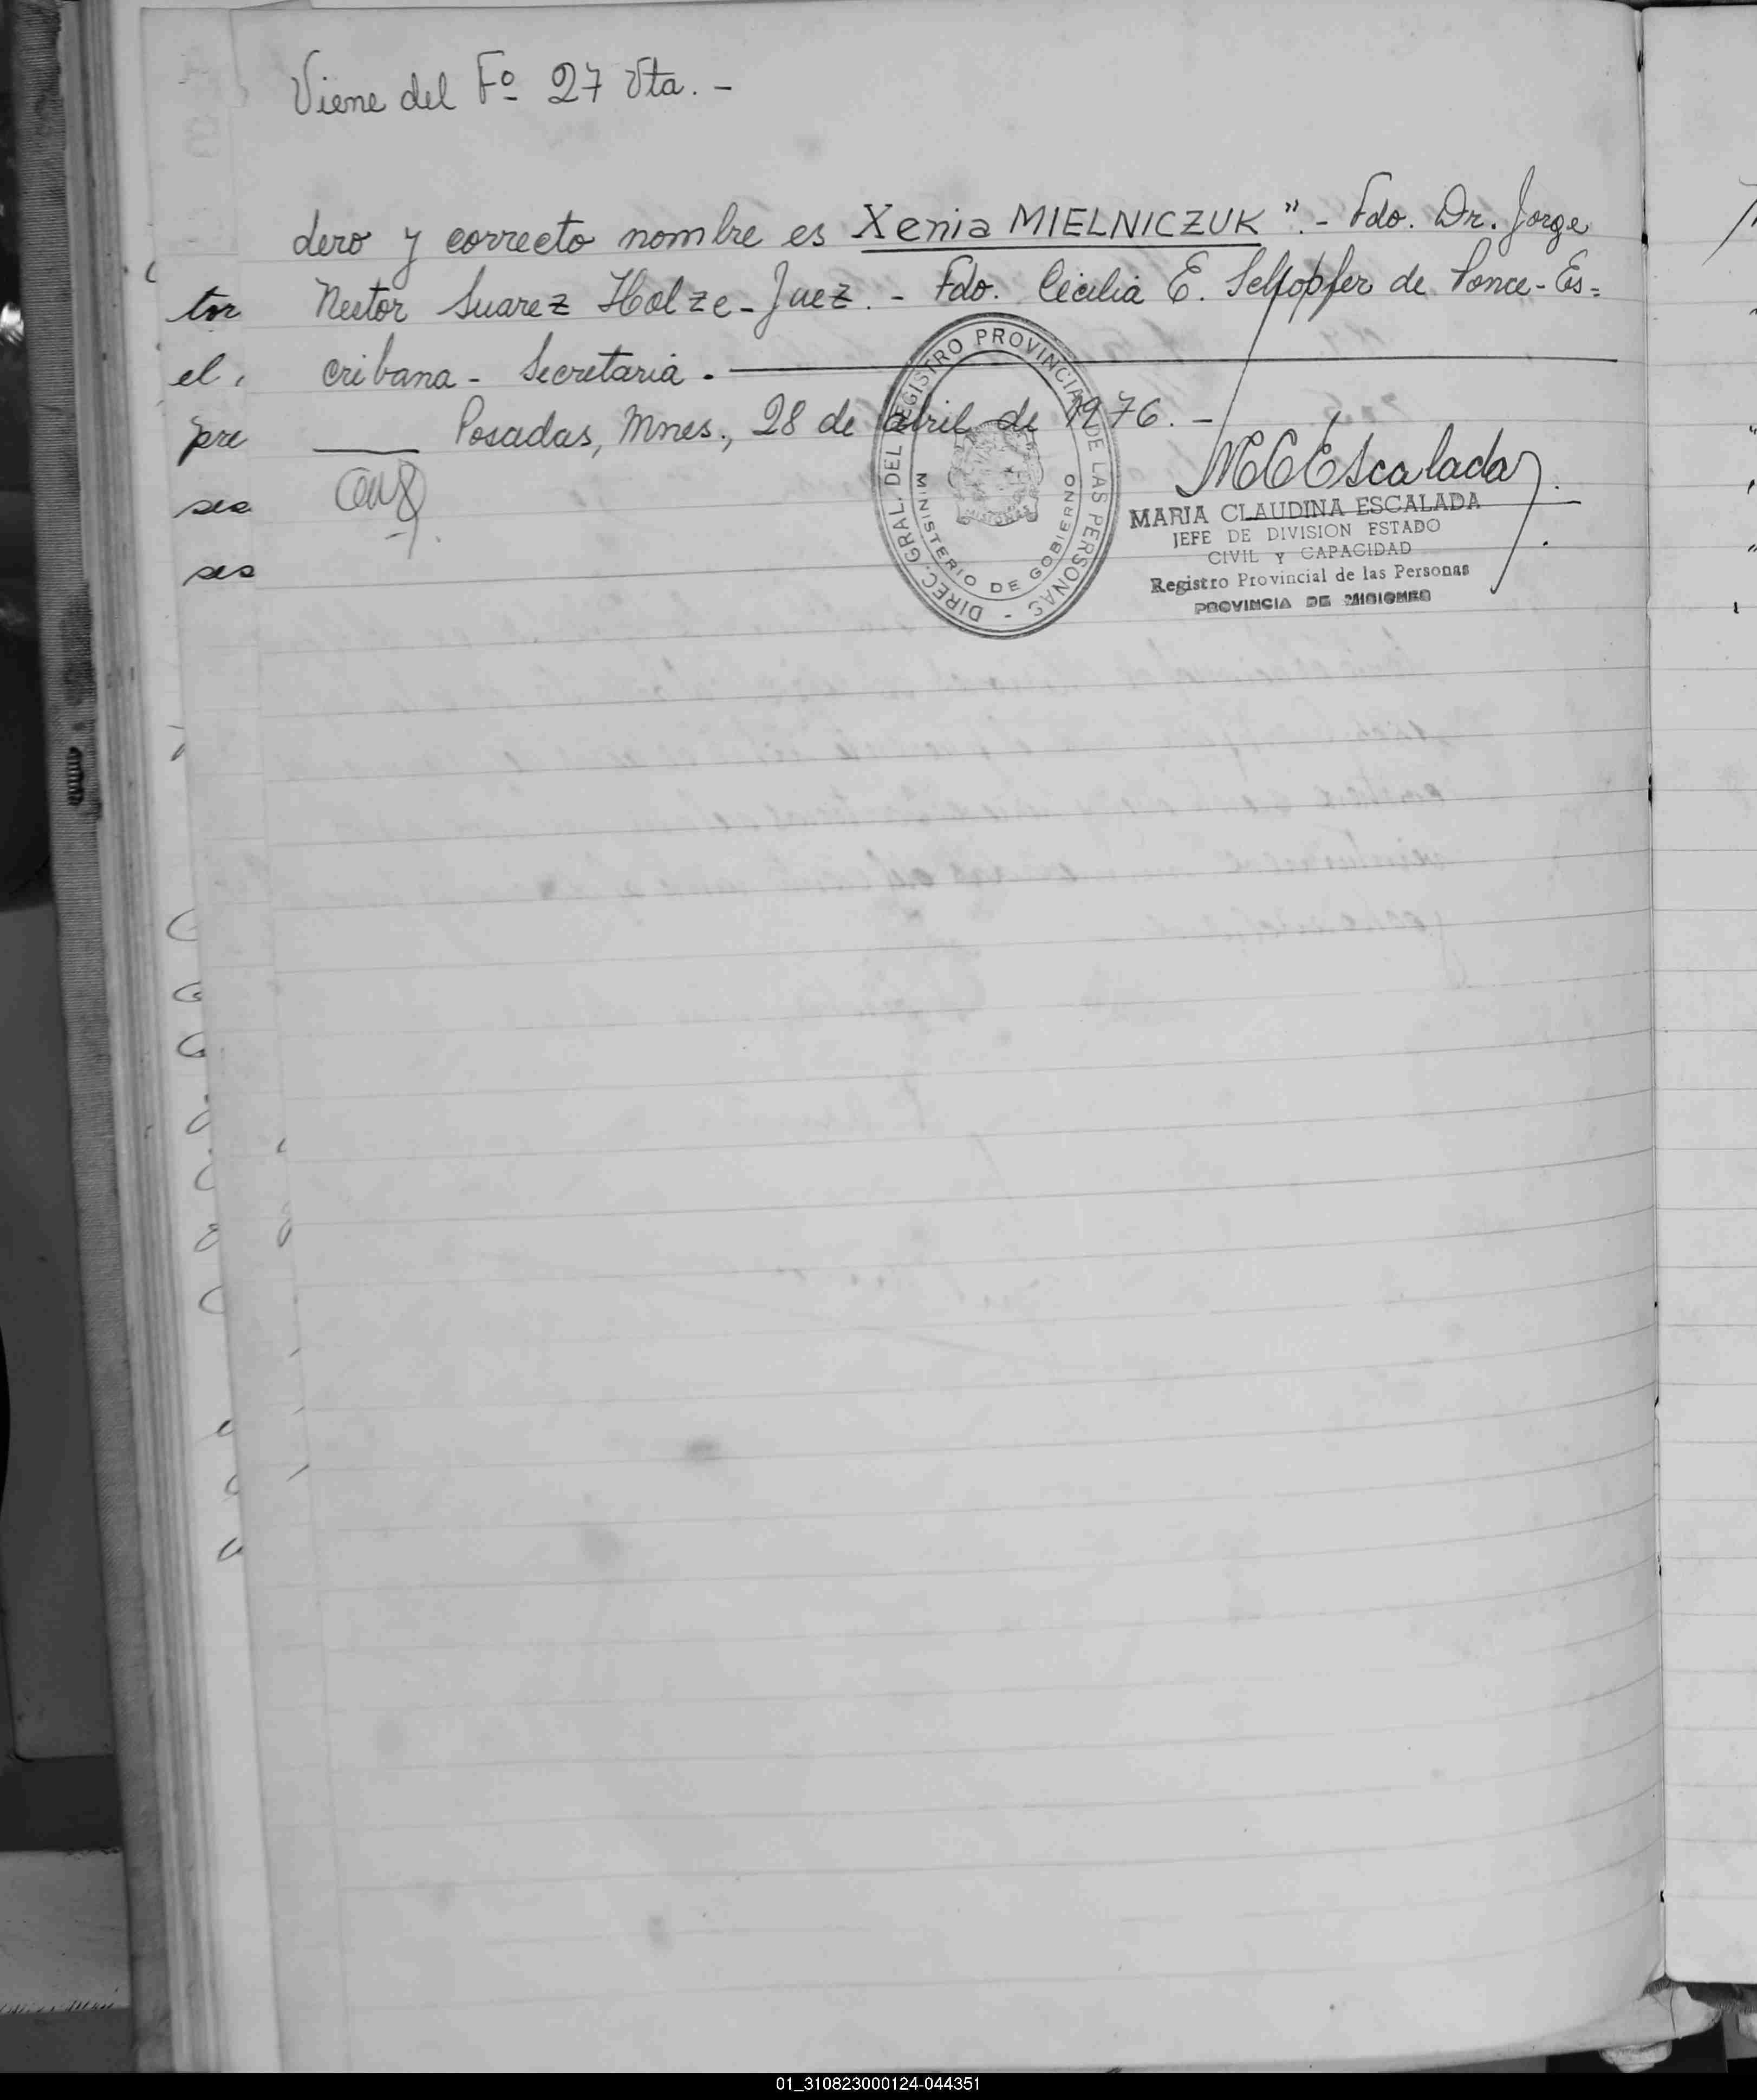 Viene del Fº 27 Vta. -
dero y correcto nombre es Xenia MIELNICZUK". - Fdo. Dr. Jorge
Nestor Suarez Holze - Juez. - Fdo. Cecilia E. Schopfer de Ponce - Es=
cribana - Secretaria.
Posadas, Mnes., 28 de abril de 1976. -
DIREC. GRAL. DEL REGISTRO PROVINCIAL DE LAS PERSONAS -
MINISTERIO DE GOBIERNO
MCEscalada
MARIA CLAUDINA ESCALADA
JEFE DE DIVISION ESTADO
CIVIL Y CAPACIDAD
Registro Provincial de las Personas
PROVINCIA DE MISIONES
tor
el
pre
01_310823000124-044351